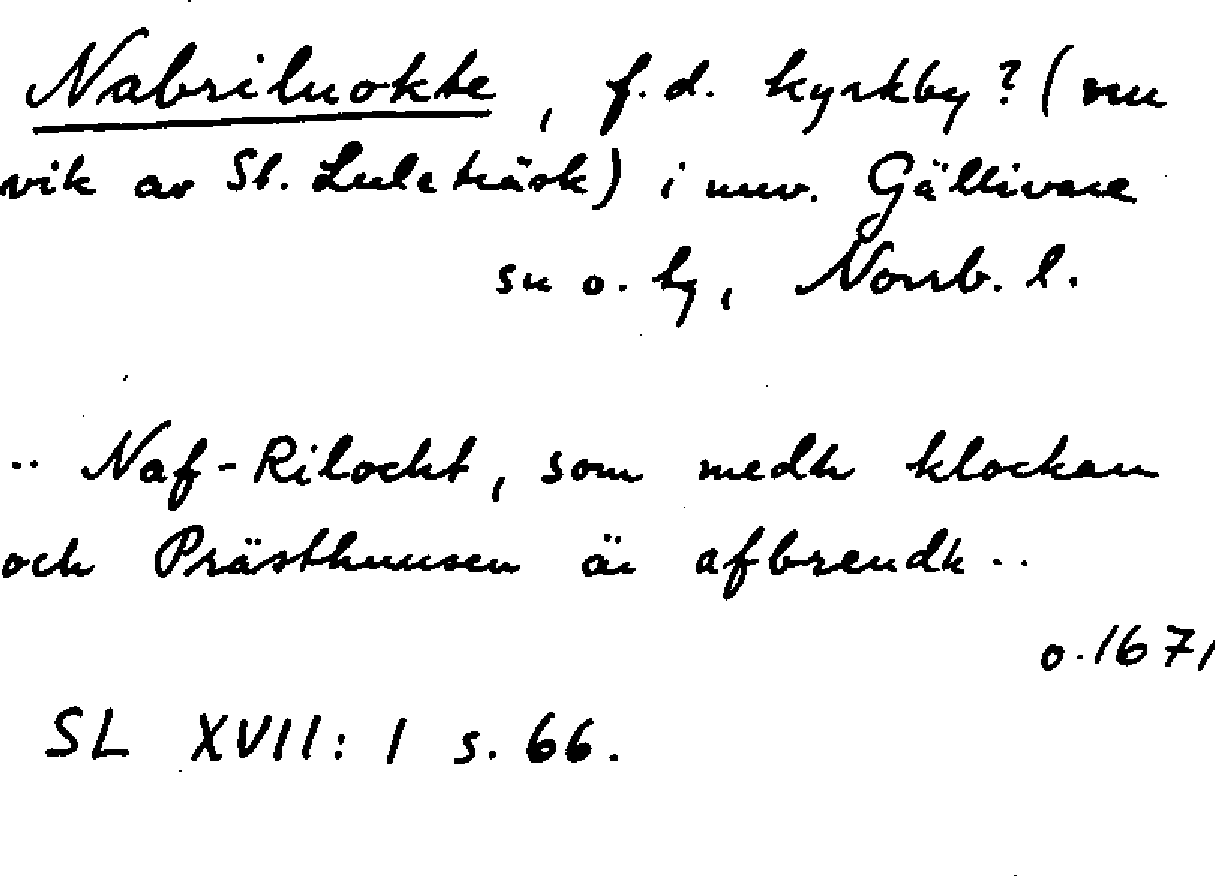 Nabriluokte, f.d. kyrkby? (nu
vik av St. Lule träsk) i nuv. Gällivare
sn o. hg, Norrb. l.
.. Naf-Rilockt, som medh klockan
och Prästhuusen är afbrendh ..
o. 1671
SL XVII: 1 s. 66.